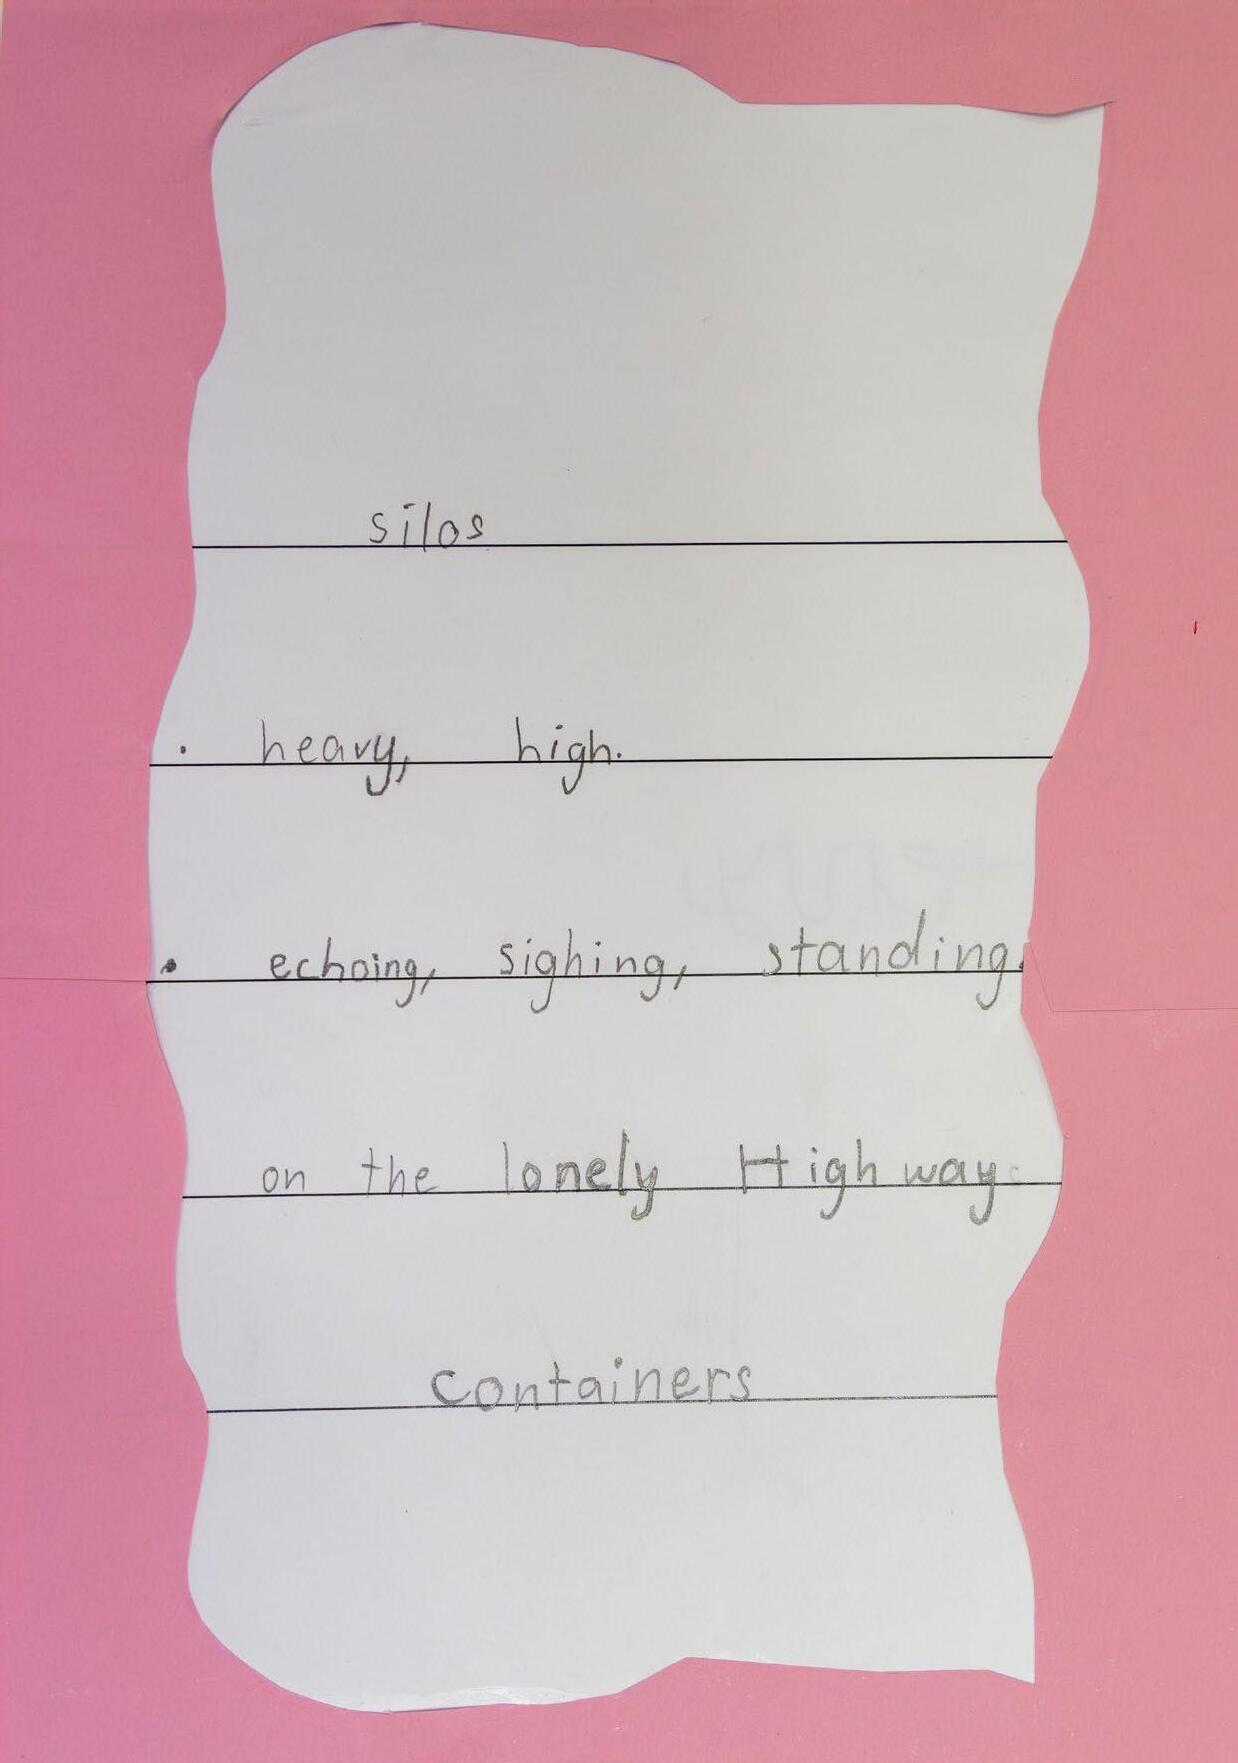 silos
. heavy, high.
. echoing, sighing, standing.
on the lonely Highway.
containers